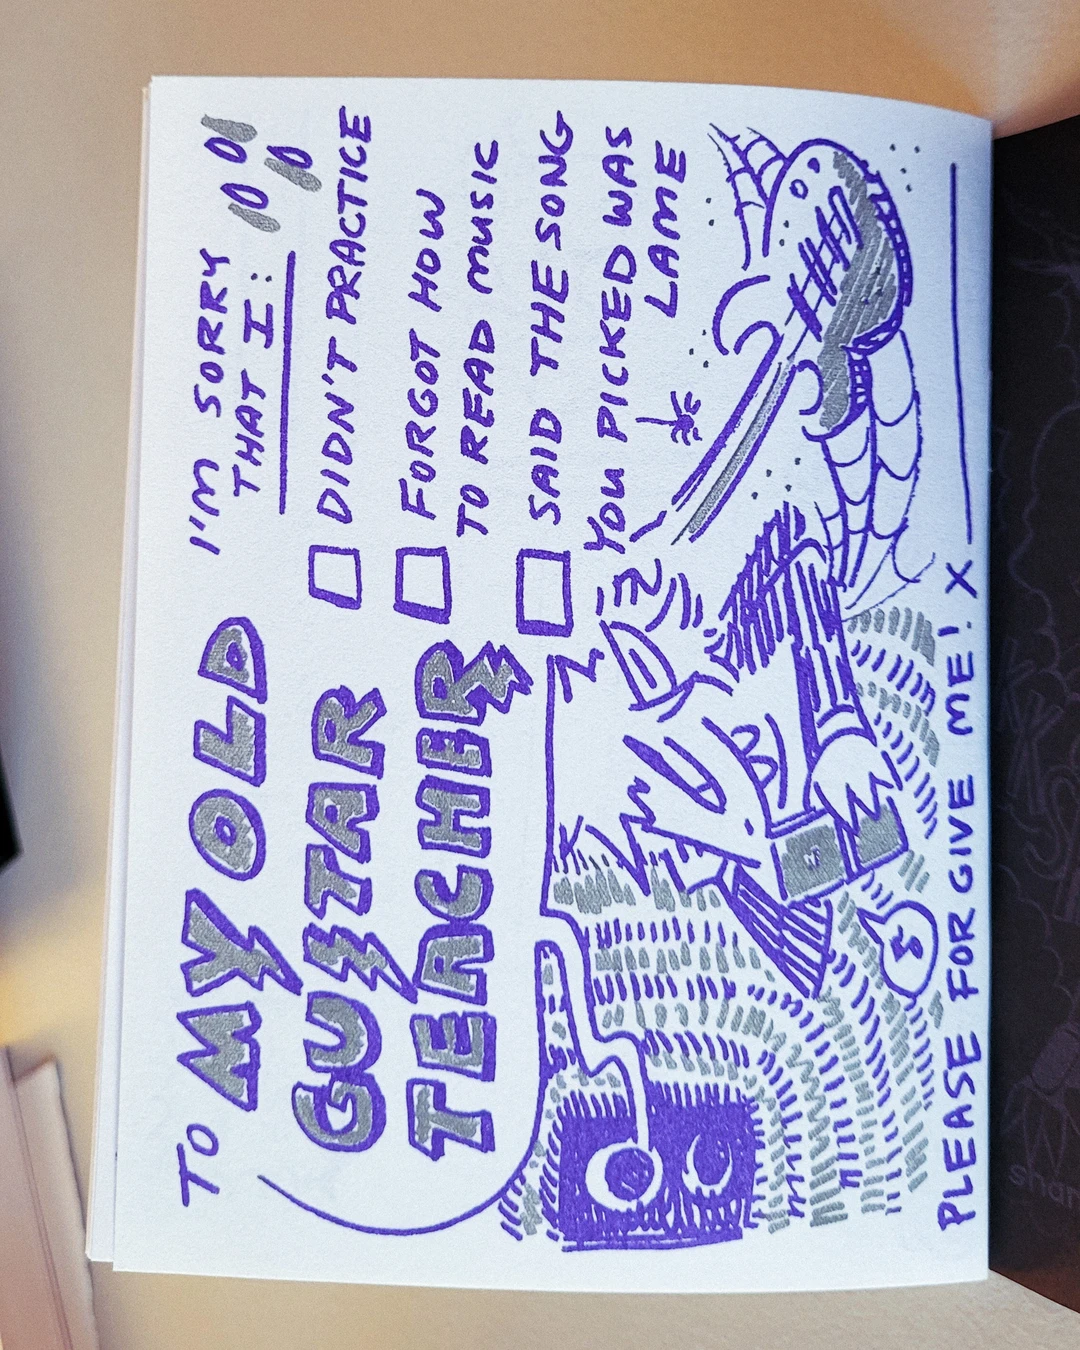 TO
MY OLD
GUITAR
TEACHER
I'M SORRY
THAT I:
DIDN'T PRACTICE
FORGOT HOW
TO READ MUSIC
SAID THE SONG
YOU PICKED WAS
LAME
PLEASE FORGIVE ME! X